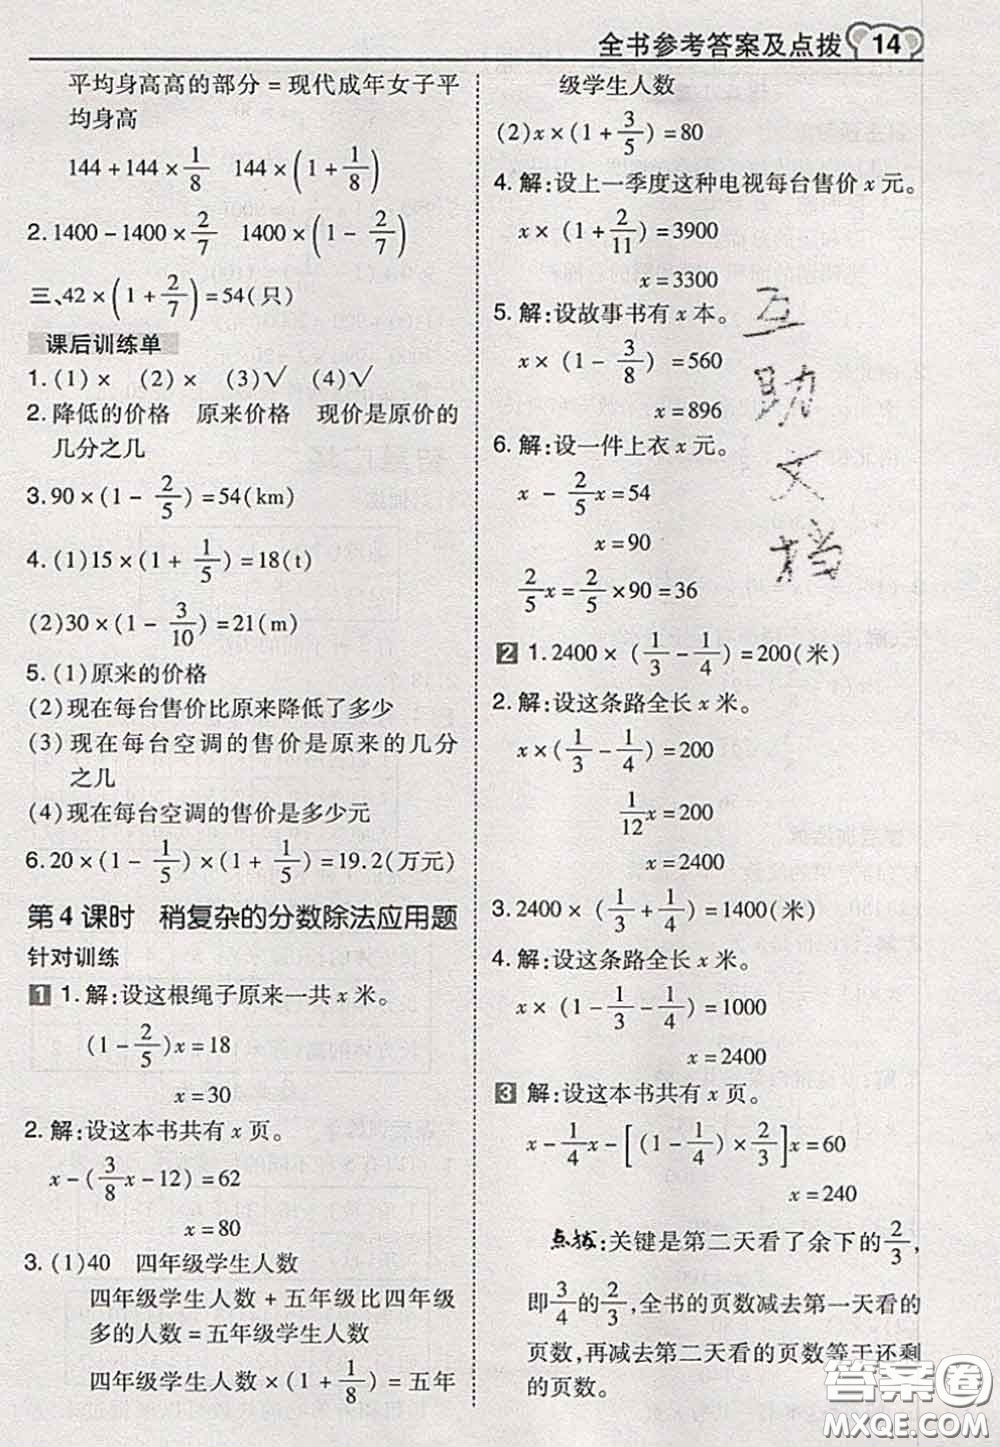 全书参考答案及点拨 14
平均身高高的部分 = 现代成年女子平
均身高
144 + 144 × 1/8   144 × (1 + 1/8)
2. 1400 - 1400 × 2/7   1400 × (1 - 2/7)
三、42 × (1 + 2/7) = 54(只)
课后训练单
1. (1) ×   (2) ×   (3) √   (4) √
2. 降低的价格   原来价格   现价是原价的
几分之几
3. 90 × (1 - 2/5) = 54(km)
4. (1) 15 × (1 + 1/5) = 18(t)
(2) 30 × (1 - 3/10) = 21(m)
5. (1) 原来的价格
(2) 现在每台售价比原来降低了多少
(3) 现在每台空调的售价是原来的几分
之几
(4) 现在每台空调的售价是多少元
6. 20 × (1 - 1/5) × (1 + 1/5) = 19.2(万元)
第 4 课时   稍复杂的分数除法应用题
针对训练
1 1. 解:设这根绳子原来一共 x 米。
(1 - 2/5)x = 18
x = 30
2. 解:设这本书共有 x 页。
x - (3/8x - 12) = 62
x = 80
3. (1) 40   四年级学生人数
四年级学生人数 + 五年级比四年级
多的人数 = 五年级学生人数
四年级学生人数 × (1 + 1/8) = 五年
级学生人数
(2) x × (1 + 3/5) = 80
4. 解:设上一季度这种电视每台售价 x 元。
x × (1 + 2/11) = 3900
x = 3300
5. 解:设故事书有 x 本。
x × (1 - 3/8) = 560
x = 896
6. 解:设一件上衣 x 元。
x - 2/5x = 54
x = 90
2/5x = 2/5 × 90 = 36
2 1. 2400 × (1/3 - 1/4) = 200(米)
2. 解:设这条路全长 x 米。
x × (1/3 - 1/4) = 200
1/12x = 200
x = 2400
3. 2400 × (1/3 + 1/4) = 1400(米)
4. 解:设这条路全长 x 米。
x × (1 - 1/3 - 1/4) = 1000
x = 2400
3 解:设这本书共有 x 页。
x - 1/4x - [(1 - 1/4) × 2/3]x = 60
x = 240
点拨:关键是第二天看了余下的2/3,
即3/4的2/3,全书的页数减去第一天看的
页数,再减去第二天看的页数等于还剩
的页数。
互
助
文
档
答案圈
MXQE.COM